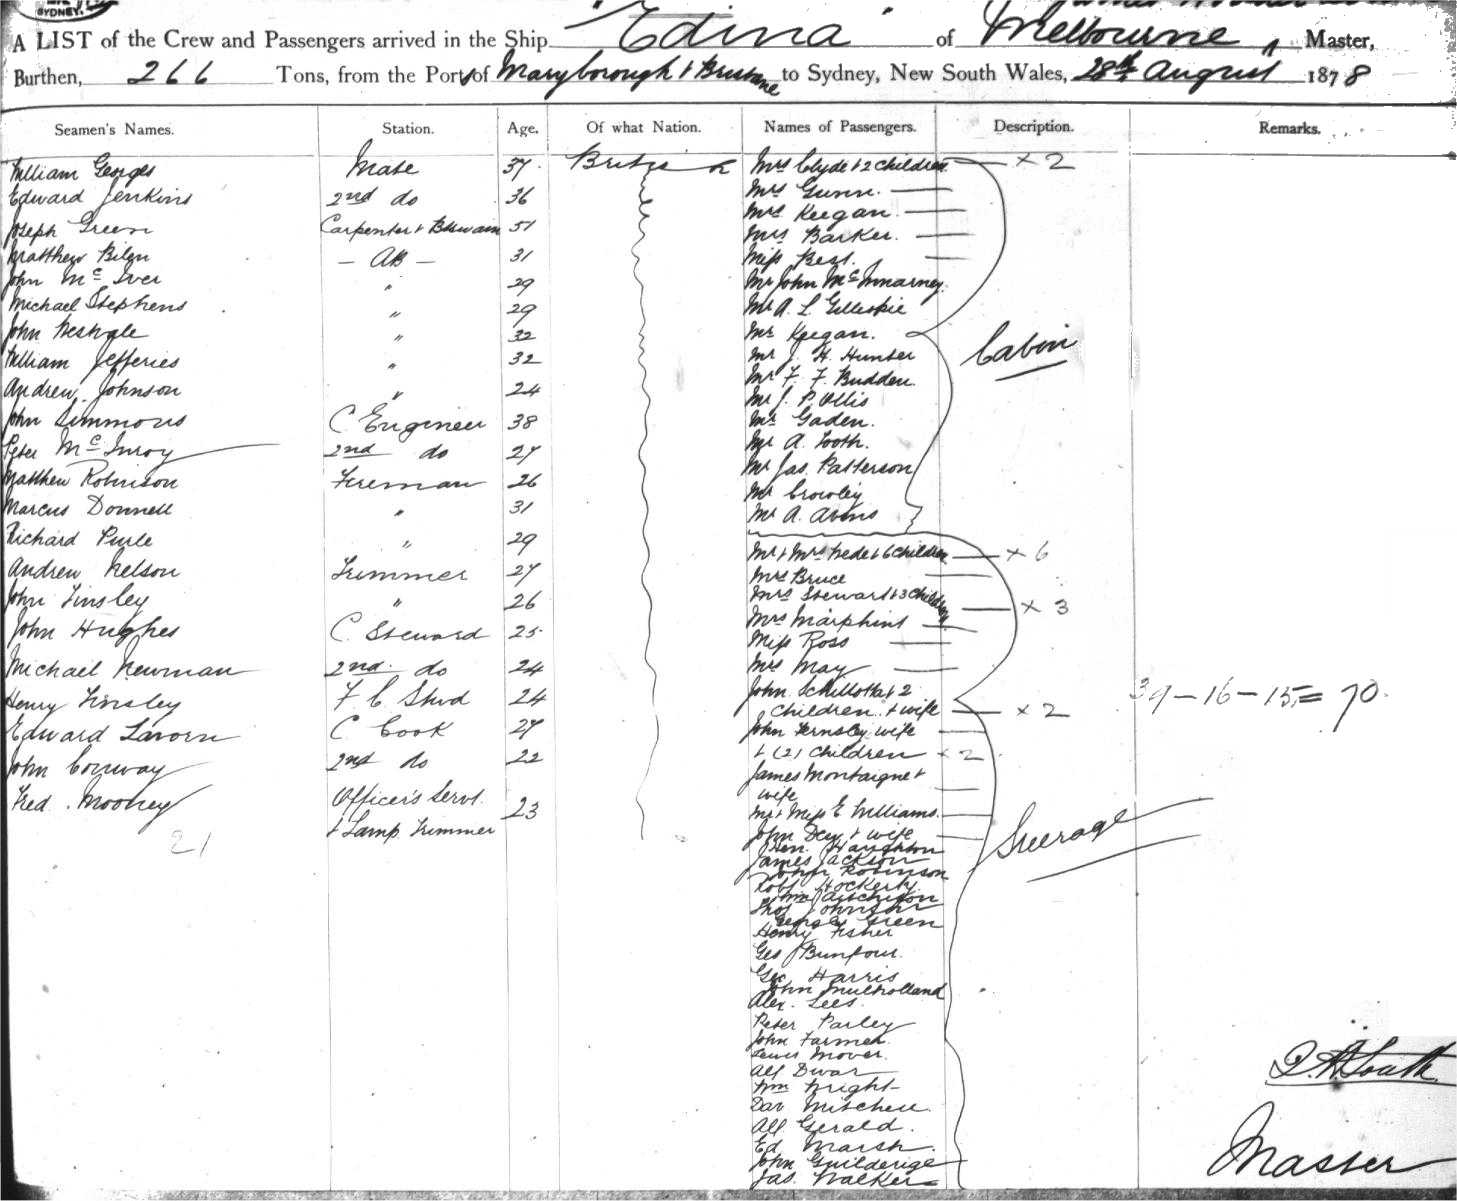 SYDNEY.
A LIST of the Crew and Passengers arrived in the Ship "Edina" of Melbourne, Master,
Burthen, 266 Tons, from the Port of Maryborough & Brisbane to Sydney, New South Wales, 28th August 1878
Seamen's Names. Station. Age. Of what Nation. Names of Passengers. Description. Remarks.
William Georges Mate 37 British Mrs Clyde & 2 Children x 2
Edward Jenkins 2nd do 36 Mrs Gunn.
Joseph Green Carpenter & 51 Mrs Keegan.
Matthew AB 31 Mrs Barker.
John McIver " 29 Miss Best.
Michael Stephens " 29 Mr John
John " 32 Mr A. L Gilleskie
William Jefferies " 32 Mr Keegan.
Andrew Johnson " 24 Mr J. H. Hunter Cabin
John Simmons C Engineer 38 Mr F. F. Budden.
Peter McInroy 2nd do 27 Mr J. P Ollis
Matthew Robinson Fireman 26 Mr Gaden.
Marcus Donnell " 31 Mr A. Tooth.
Richard " 29 Mr Jas. Patterson
Andrew Nelson Trimmer 27 Mr Crowley
John Tinsley " 26 Mr A.
John Hughes C. Steward 25 Mr & Mrs & 6 Children x 6
Michael Newman 2nd do 24 Mrs Bruce
Henry Tinsley F C Stwd 24 Mrs Stewart & 3 Children x 3
Edward C Cook 27 Mrs
John Conway 2nd do 22 Miss Ross
Fred. Mooney Officer's Servt. 23
& Lamp Trimmer
21
Mrs May
John & 2
Children & wife x 2
39 - 16 - 15 = 70.
John wife
& (2) Children x 2
James Montaigne &
wife
Mr & Miss E Williams.
John & wife
Steerage
Hen. Haughton
James Jackson
John Robinson
Robt Hockerty
Aitchison
Thos Johnston
George Green
Henry Fisher
Geo
Geo Harris
John Mulholland
Alex. Lees.
Peter Parley
John Farmer.
Lewis Mover.
Alf
Wm Wright
Mitchell.
Alf Gerald.
Ed Marsh.
John
Jas. Walker
Master